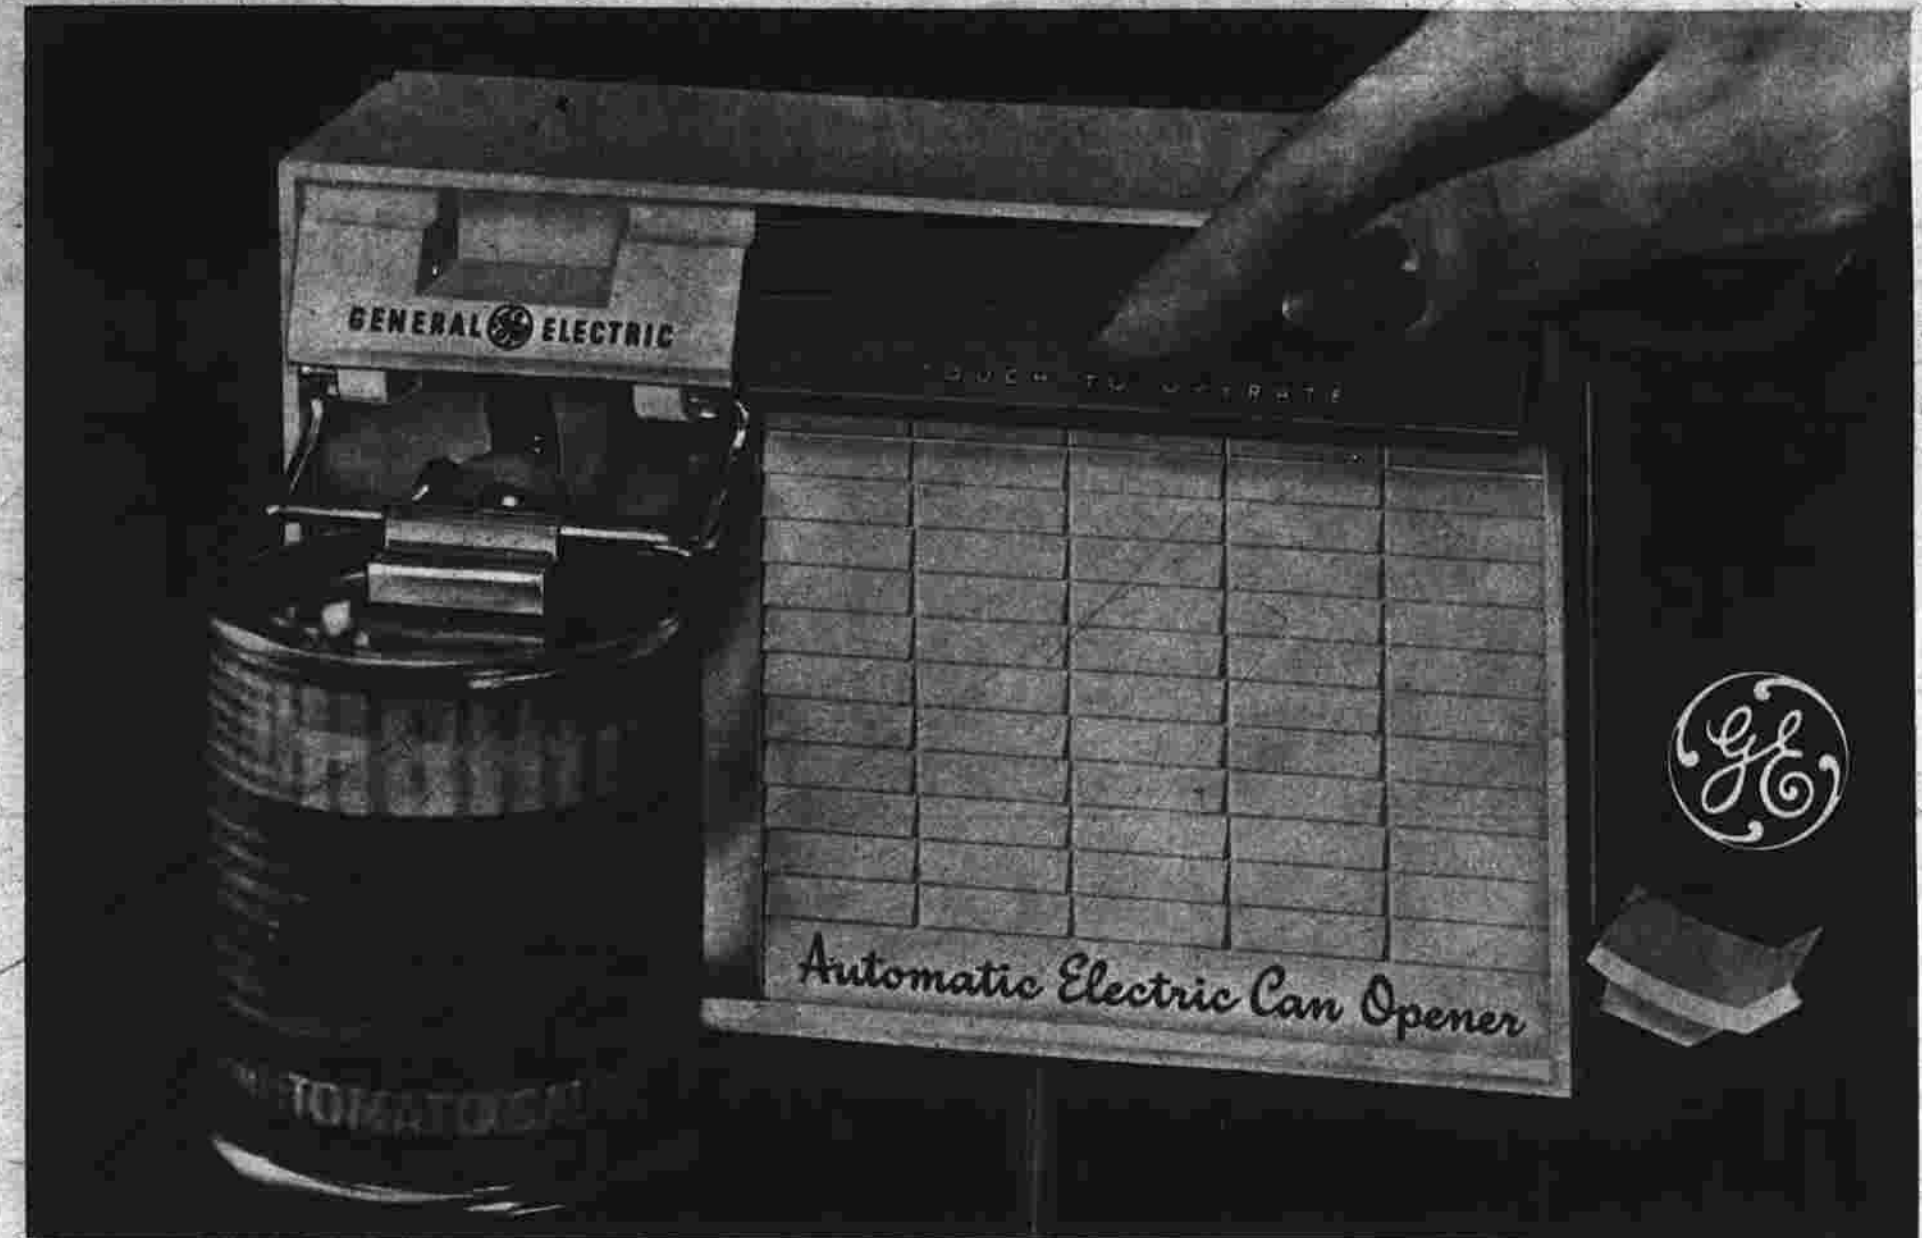 GENERAL GE ELECTRIC
TOUCH TO OPERATE
GE
Automatic Electric Can Opener
TOMATO